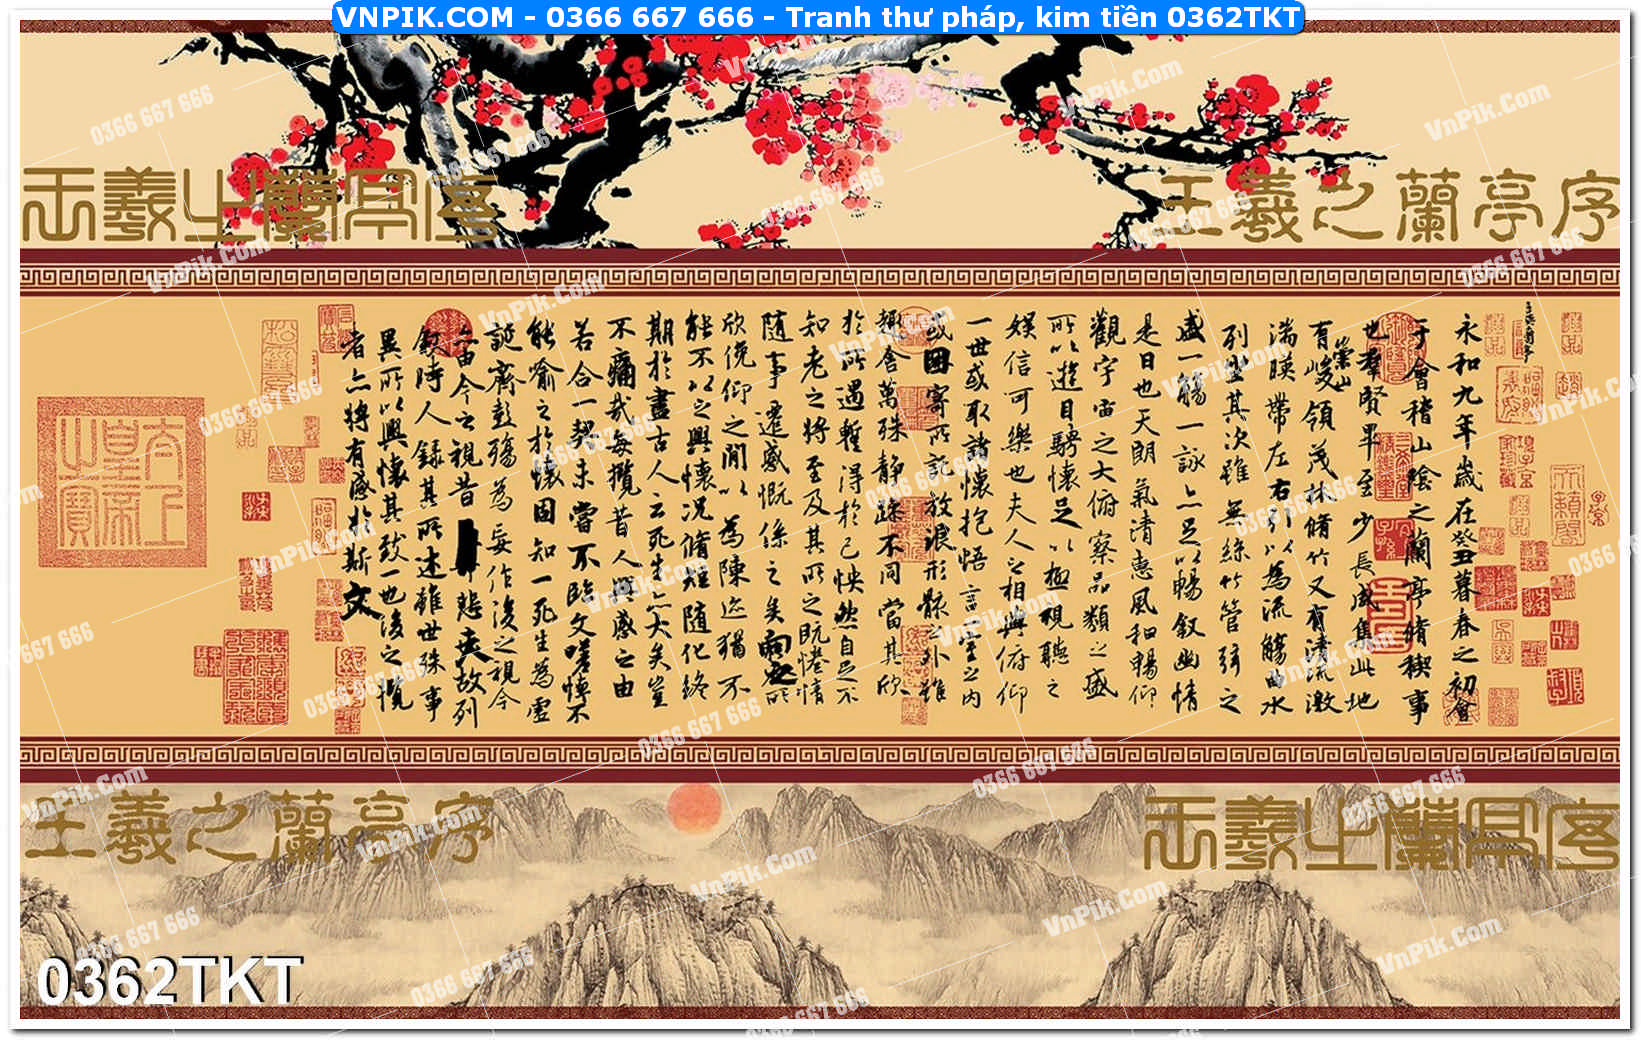 VNPIK.COM - 0366 667 666 - Tranh thư pháp, kim tiền 0362TKT
王羲之蘭亭序
王羲之蘭亭序
永和九年歲在癸丑暮春之初會
于會稽山陰之蘭亭脩稧事
也羣賢畢至少長咸集此地
有崇山峻領茂林脩竹又有清流激
湍暎帶左右引以為流觴曲水
列坐其次雖無絲竹管弦之
盛一觴一詠亦足以暢敘幽情
是日也天朗氣清惠風和暢仰
觀宇宙之大俯察品類之盛
所以遊目騁懷足以極視聽之
娛信可樂也夫人之相與俯仰
一世或取諸懷抱悟言一室之內
或因寄所託放浪形骸之外雖
趣舍萬殊靜躁不同當其欣
於所遇暫得於己怏然自足不
知老之將至及其所之既惓情
隨事遷感慨係之矣向之所
欣俛仰之閒以為陳迹猶不
能不以之興懷況脩短隨化終
期於盡古人云死生亦大矣豈
不痛哉每攬昔人興感之由
若合一契未嘗不臨文嗟悼不
能喻之於懷固知一死生為虛
誕齊彭殤為妄作後之視今
亦由今之視昔悲夫故列
敘時人錄其所述雖世殊事
異所以興懷其致一也後之攬
者亦將有感於斯文
太上皇帝之寶
王羲之蘭亭序
王羲之蘭亭序
0362TKT
VnPik.Com
0366 667 666